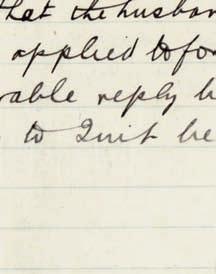 that the husban
applied to for
rable reply h
to Quit he